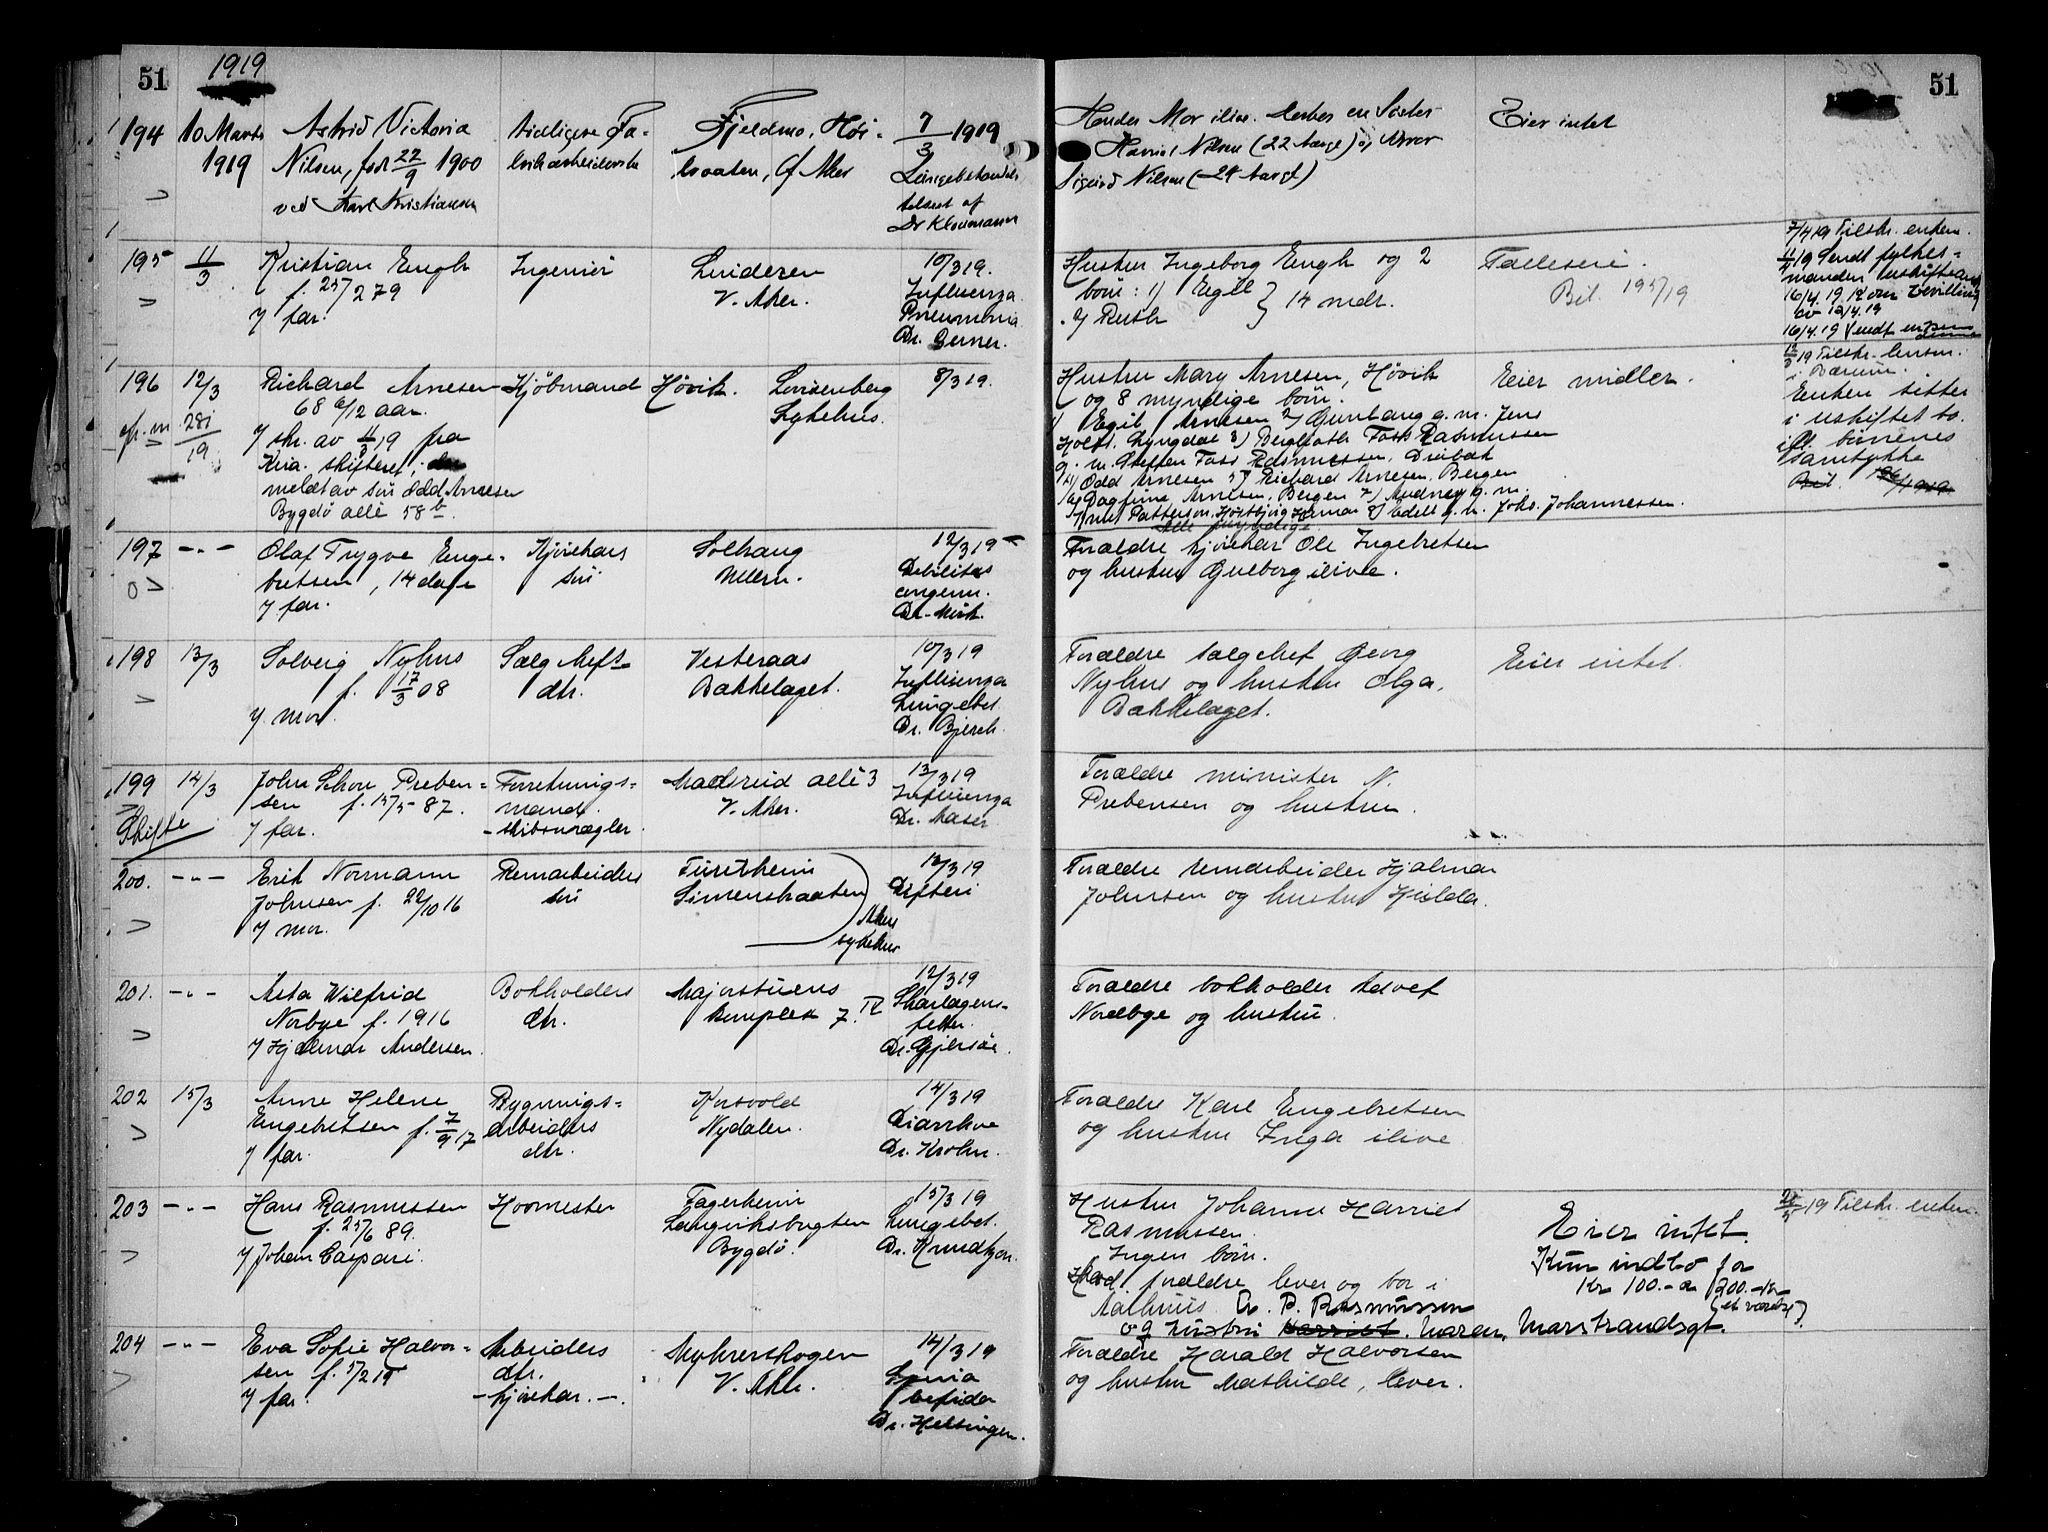 51
1919
194
10 Marts
1919
Astrid Victoria
Nilsen, født 22/9 1900
ved Karl Kristiansen
tidligere Fa-
brikarbeiderske
Fjeldmo, Høi-
braaten, Ø Aker
7/3 1919
af
Dr Klouman
195
11/3
Kristian Engh
f. 25/2 79
v/ far.
Ingeniør
Linderen
V. Aker.
10/3 19.
Influenza
Pneumonia
Dr. Gerner.
196
12/3
281/19
Richard Arnesen
68 6/12 aar.
v/ skr. av 11/3 19 fra
Kria. skifteret,
meldt av søn Odd Arnesen
Bygdø allé 58 b.
Kjøbmand
Høvik.
Lovisenberg
Sykehus.
8/3 19.
197
-"-
Olaf Trygve Enge-
bretsen, 14 dage
v/ far.
Kjørekars
søn
Solhaug
Ullern.
12/3 19
Debilitas
congenn.
Dr.
198
13/3
Solveig Nyhus
f. 17/3 08
v/ mor.
Salg
dtr.
Vesteraas
Bækkelaget.
10/3 19
Influenza
Lungebet.
Dr. Bjerch.
199
14/3
Skifte
John Schou Preben-
sen f. 15/5 87.
v/ far.
Forretnings-
mand.
- skibsmægler.
Madserud allé 3
V. Aker.
13/3 19
Influenza
Dr. Maser
200.
-"-
Erik Normann
Johnsen f. 22/10 16
v/ mor.
Remarbeiders
søn
Simenbraaten
Akers
sykehus
13/3 19
Difteri
201.
-"-
Asta Wilfrid
Norbye f. 1916
v/ Hjalmar Andersen.
Bokholders
dtr.
Majorstuens
kompleks 7. IV
12/3 19
Skarlagens-
feber.
Dr. Gjersøe.
202
15/3
Anne Helene
Engebretsen f. 7/9 17
v/ far.
Bygnings-
arbeiders
dtr.
Korsvold
Nydalen.
14/3 19
Diarrhoe
Dr. Krohn.
203
-"-
Hans Rasmussen
f. 25/6 89.
v/ Johan Caspari.
Hovmester
Fagerheim
Langviksbugten
Bygdø.
15/3 19
Lungebet.
Dr. Knudtzon.
204
-"-
Eva Sofie Halvor-
sen f. 5/2 19
v/ far.
Arbeiders
dtr.
- kjørekar. -.
Myhrerskogen
V. Aker.
14/3 19
bifida
Dr. Helsingen.
51
Hendes Mor ilive. Desber en Søster
Harriet Nilsen (22 Aarg.) og Bror
Sigurd Nilsen (24 Aarg.)
Eier intet
Hustru Ingeborg Engh og 2
børn: 1) Egil } 14 mdr.
2) Ruth
Fælleseie.
Bil. 195/19
7/4 19 Tilskr. enken.
19 Sendt fylkes-
manden
16/4. 19 bevilling
av 12/4. 19
16/4. 19 Sendt enken
Hustru Mary Arnesen, Høvik
og 8 myndige børn.
1) Egil Arnesen 2) Gunlaug g. m. Jens
Holft. Lyngdal 3) Bergljoth Foss Rasmussen
g. m. Steffen Foss Rasmussen, Drøbak
4) Odd Arnesen 5) Richard Arnesen, Bergen
6) Dagfinn Arnesen, Bergen 7) Audney g. m.
Knut Patterson, 8) Edell g. m. Johs. Johannessen.
Alle myndige
Eier midler.
12/3 19 Tilskr. lensm.
i Bærum.
Enken sitter
i uskiftet bo.
ifl. børnenes
samtykke
Bil. 196/1919
Forældre kjørekar Ole Ingebretsen
og hustru Gulborg ilive.
Forældre salgchef Georg
Nyhus og hustru Olga,
Bækkelaget.
Eier intet.
Forældre minister N.
Prebensen og hustru.
Forældre remarbeider Hjalmar
Johnsen og hustru Hilda.
Forældre bokholder Edvef
Nordbye og hustru.
Forældre Karl Engebretsen
og hustru Inga ilive
Hustru Johanne Harriet
Rasmussen.
Ingen børn.
forældre lever og bor i
Aarhuus. P. Rasmussen
og hustru Harriet. Maren, Marstrandsgt.
Eier intet.
Kun indbo for
Kr 100.- a 200.- Kr
25/3 19 Tilskr. enken.
Forældre Harald Halvorsen
og hustru Mathilde, lever.